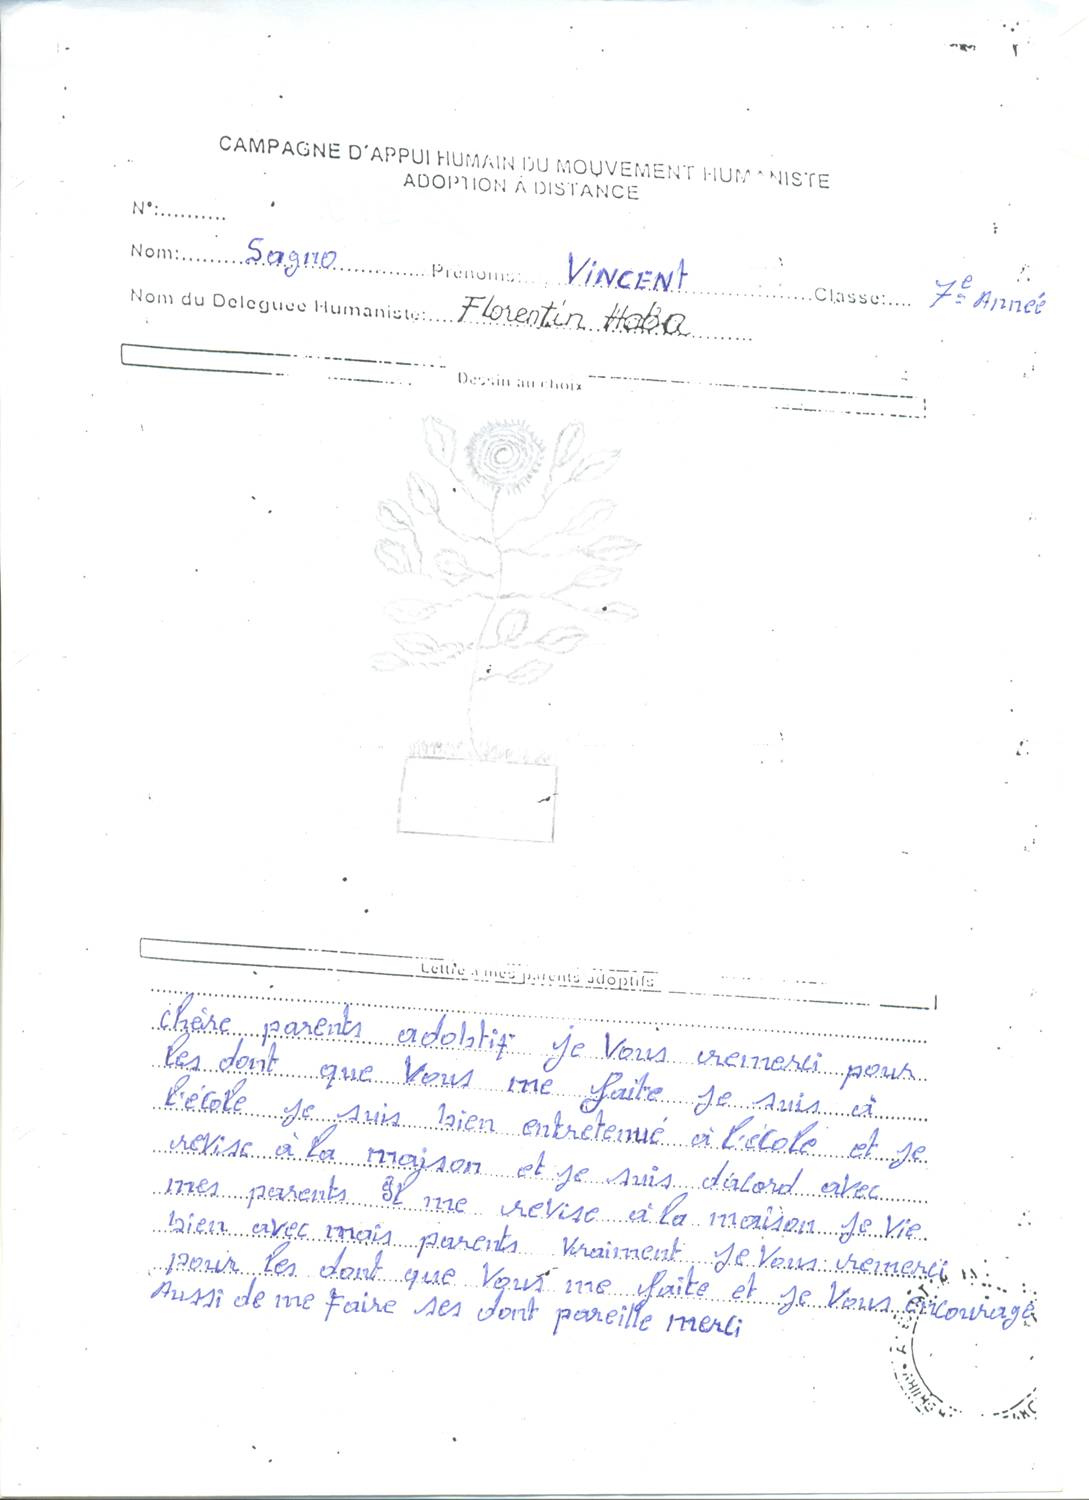 CAMPAGNE D'APPUI HUMAIN DU MOUVEMENT HUMANISTE
ADOPTION À DISTANCE
N°:..........
Nom: Sagno Prénoms: VINCENt Classe: 7e Année
Nom du Déléguée Humaniste: Florentin Haba
Dessin au choix
Lettre à mes parents adoptifs
chère parents adobtif je Vous remerci pour
les dont que Vous me faite je suis à
l'école je suis bien entretenué à l'école et je
revise à la maison et je suis d'acord avec
mes parents Il me revise à la maison je vie
bien avec mais parents Vraiment je Vous remerci
pour les dont que Vous me faite et je Vous encourage
Aussi de me Faire ses dont pareille merci